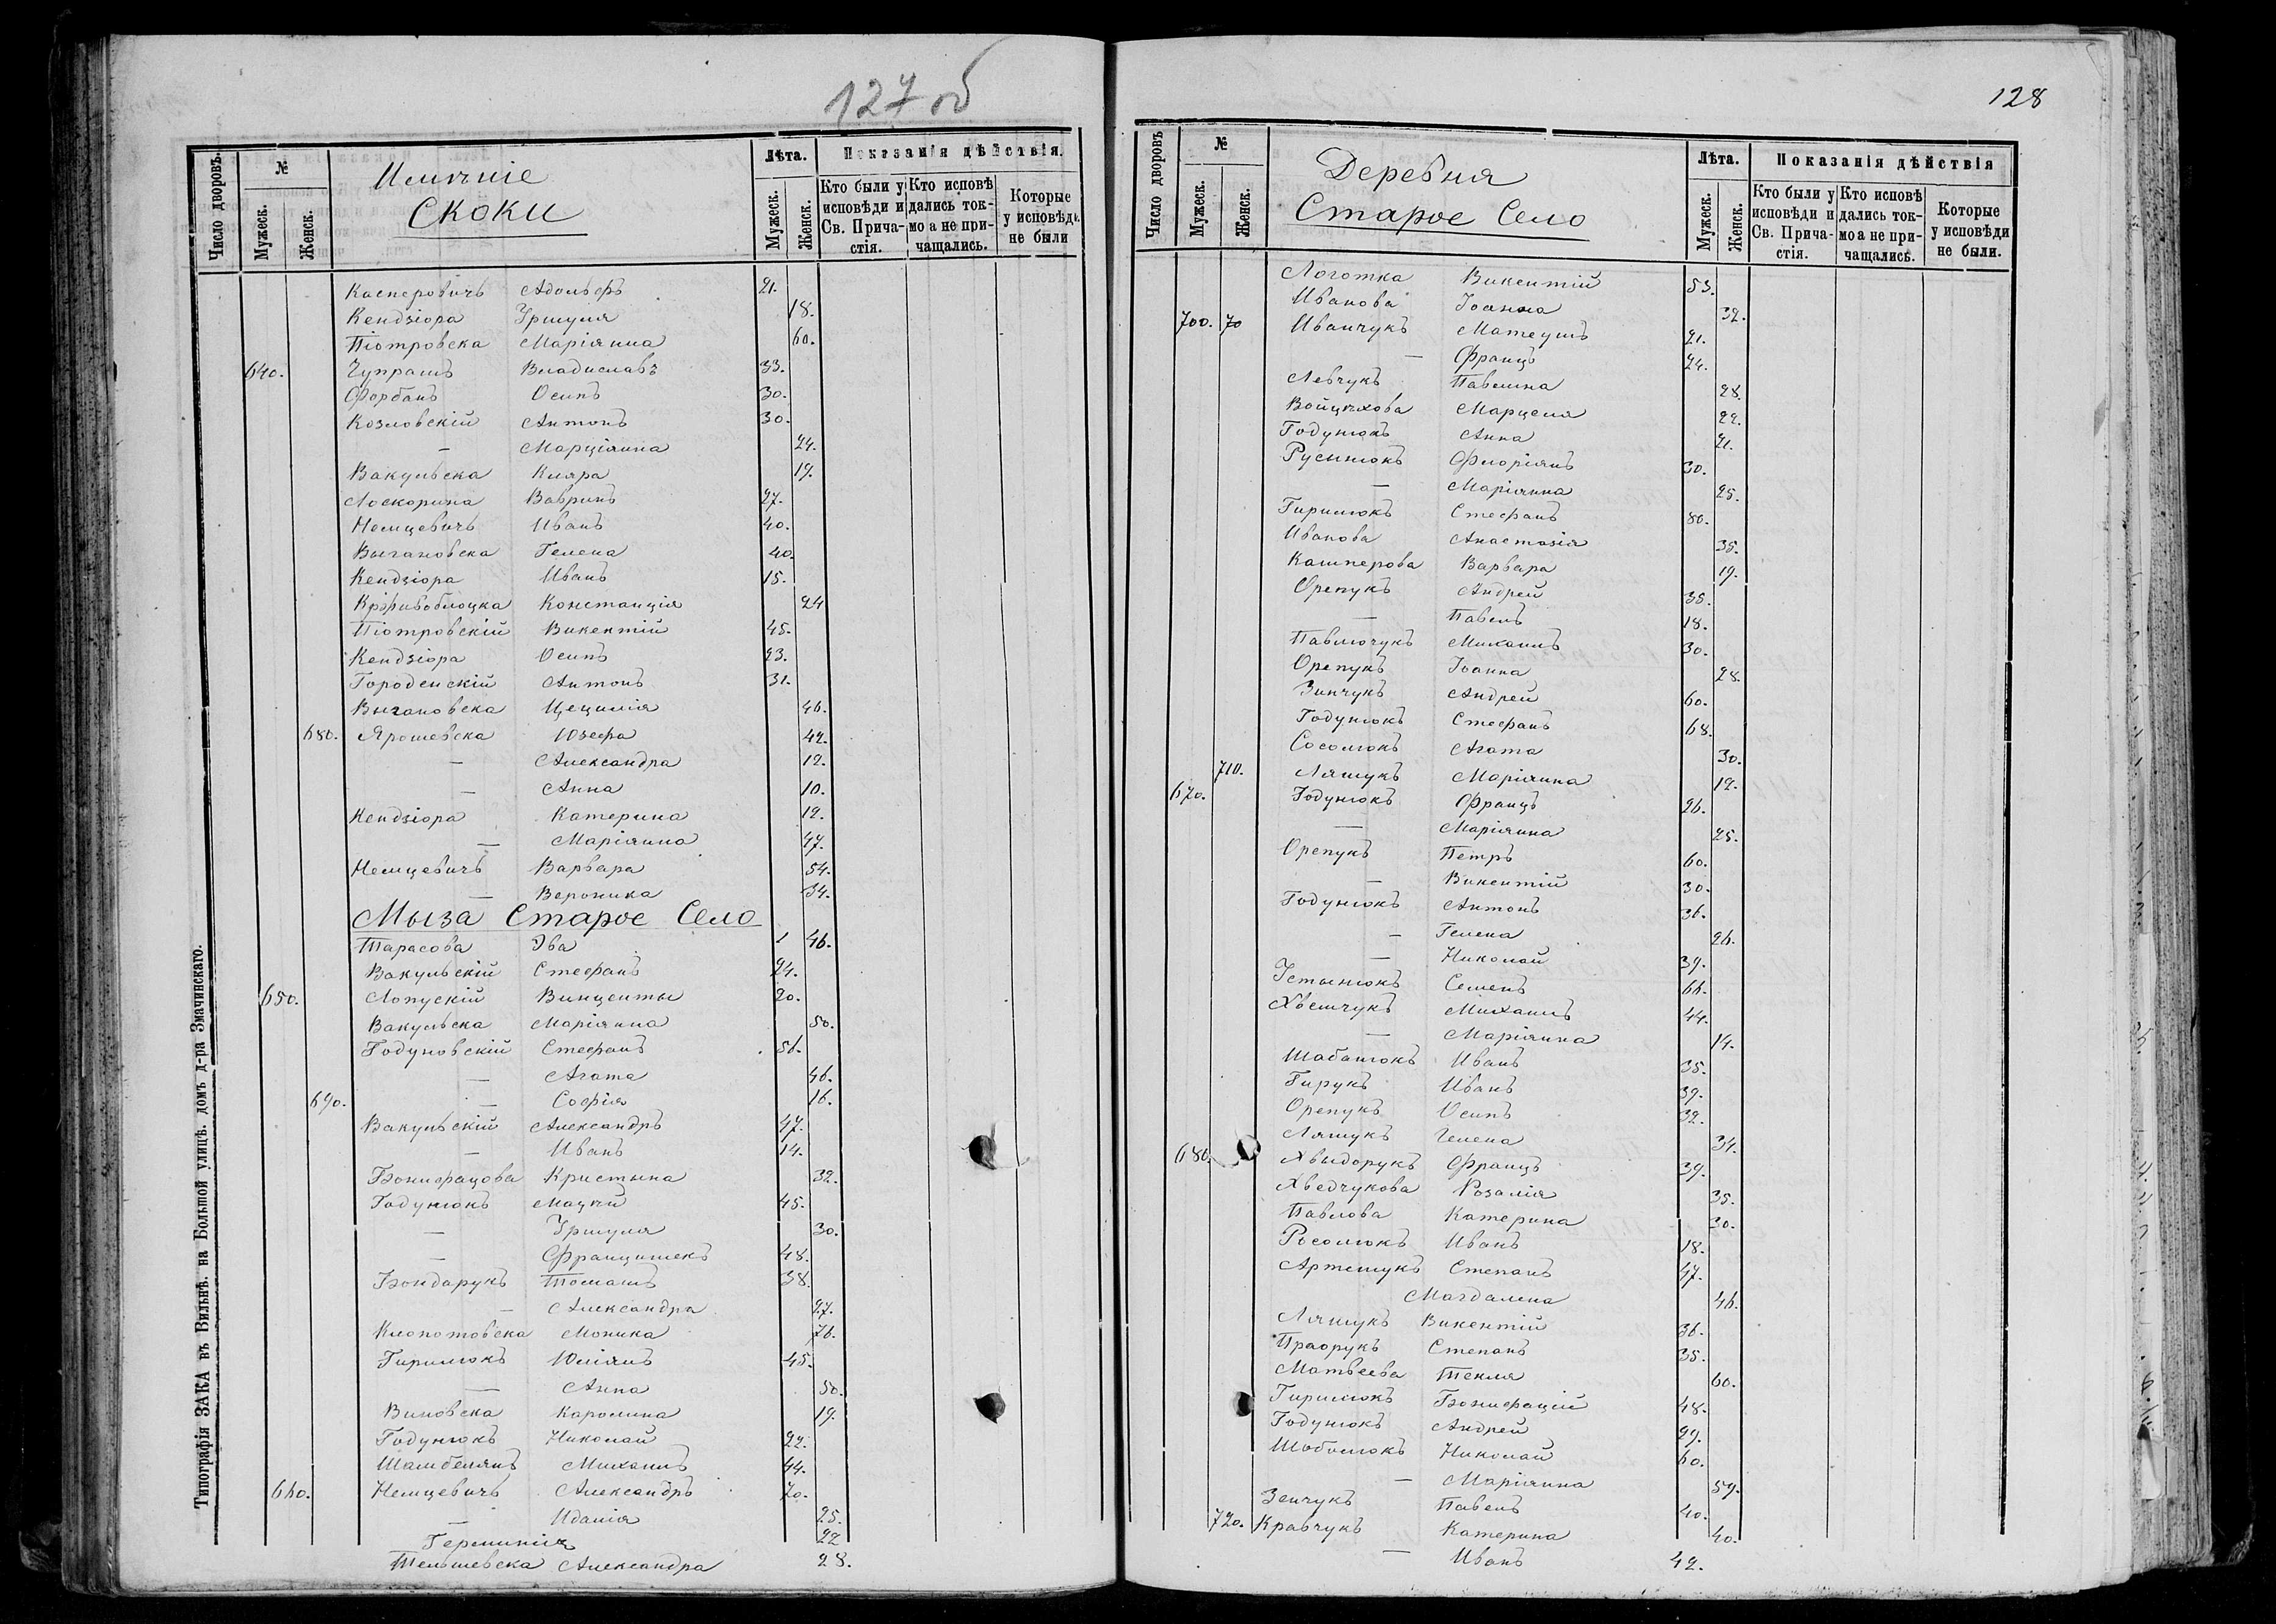 127 об
Число дворовъ.
№
Мужеск.
Женск.
Имѣніе
Скоки
Лѣта.
Мужеск.
Женск.
Показанія дѣйствія.
Кто были у исповѣди и Св. Причастія.
Кто исповѣдались токмо а не причащались.
Которые у исповѣди не были
Касперовичъ Адольфъ 21.
Кендзіора Уршуля 18.
Піотровска Маріянна 60.
640. Чупрашъ Владиславъ 33.
Форбанъ Осипъ 30.
Козловскій Антонъ 30.
— Марціянна 24.
Вакульска Кляра 19.
Лоскорина Вавринъ 27.
Немцевичъ Иванъ 40.
Выгановска Гелена 40.
Кендзіора Иванъ 15.
Констанція 24
Піотровскій Викентій 45.
Кендзіора Осипъ 23.
Городенскій Антонъ 31.
Выгановска Цецилія 46.
680. Ярошевска Юзефа 42.
— Александра 12.
— Анна 10.
Кендзіора Катерина 12.
— Маріянна 47.
Немцевичъ Варвара 54.
— Вероника 34.
Мыза Старое Село
Тарасова Эва 1 46.
Вакульскій Стефанъ 24.
650. Лопускій Винценты 20.
Вакульска Маріянна 50.
Годуновскій Стефанъ 56.
— Агата 46.
690. — Софія 16.
Вакульскій Александръ 47.
— Иванъ 14.
Бонифацова Кристына 32.
Годунюкъ Мацѣй 45.
— Уршуля 30.
— Францишекъ 48.
Бондарукъ Томашъ 38.
— Александра 27.
Клопотовска Моника 76.
Гирилюкъ Юліянъ 45.
— Анна 50.
Виловска Каролина 19.
Годунюкъ Николай 22.
Шамбелянъ Михаилъ 44.
660. Немцевичъ Александръ 70.
— Идалія 25.
Герминія 22
Тельшевска Александра 28.
Типографія ЗАКА въ Вильнѣ. на Большой улицѣ. домъ д-ра Змачинскаго.
128
Число дворовъ
№
Мужеск.
Женск.
Деревня
Старое Село
Лѣта.
Мужеск.
Женск.
Показанія дѣйствія
Кто были у исповѣди и Св. Причастія.
Кто исповѣдались токмо а не причащались.
Которые у исповѣди не были.
Логотка Викентій 53.
Иванова Іоанна 32.
700. 70 Иванчукъ Матеушъ 21.
— Францъ 24.
Левчукъ Павлина 28.
Войцѣхова Марцеля 22.
Годунюкъ Анна 21.
Русинюкъ Флоріянъ 30.
— Маріянна 25.
Гирилюкъ Стефанъ 80.
Иванова Анастазія 35.
Кашперова Варвара 19.
Орепукъ Андрей 35.
— Павелъ 18.
Павлючукъ Михаилъ 30.
Орепукъ Іоанна 28.
Зинчукъ Андрей 60.
Годунюкъ Стефанъ 68.
Сосолюкъ Агата 30.
710. Ляшукъ Маріянна 12.
670. Годунюкъ Францъ 26.
— Маріянна 25.
Орепукъ Петръ 60.
— Викентій 30.
Годунюкъ Антонъ 36.
— Гелена 26.
— Николай 39.
Устынюкъ Семенъ 66.
Хвемчукъ Михаилъ 44.
— Маріянна 14.
Шабанюкъ Иванъ 35.
Гирукъ Иванъ 39.
Орепукъ Осипъ 32.
Ляшукъ Гелена 34.
680. Хвыдорукъ Францъ 39.
Хведчукова Розалія 35.
Павлова Катерина 30.
Росолюкъ Иванъ 18.
Артемукъ Степанъ 47.
Магдалена 46.
Ляшукъ Викентій 36.
Праорукъ Степанъ 35.
Матвеева Текля 60.
Гирилюкъ Бонифацій 48.
Годунюкъ Андрей 29.
Шоболюкъ Николай 60.
— Маріянна 59.
Зенчукъ Павелъ 40.
720. Кравчукъ Катерина 40.
— Иванъ 42.